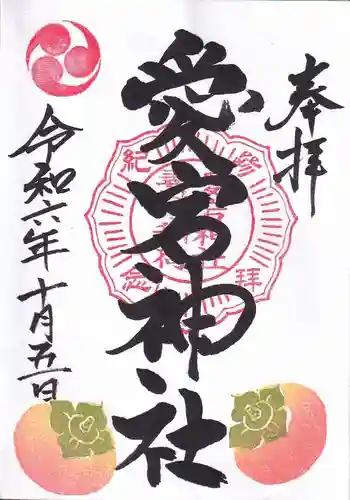 奉拝
愛宕神社
令和六年十月五日
參拜
紀念